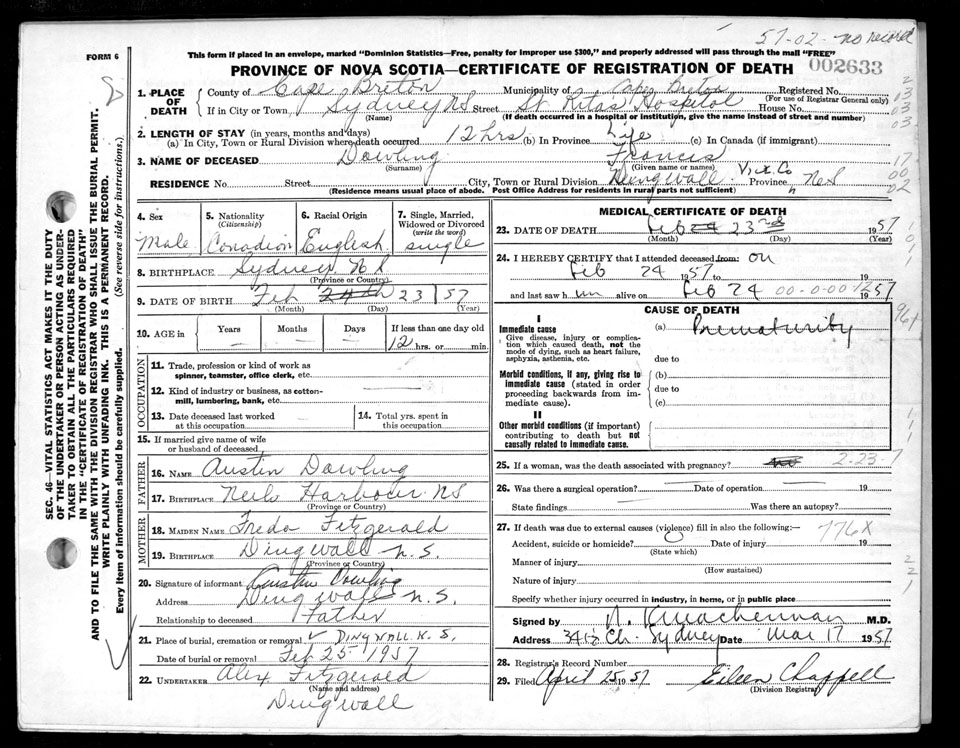 57-02 - no record
FORM 6
This form if placed in an envelope, marked "Dominion Statistics—Free, penalty for improper use $300," and properly addressed will pass through the mail "FREE"
PROVINCE OF NOVA SCOTIA—CERTIFICATE OF REGISTRATION OF DEATH 002633
1. PLACE OF DEATH
County of Cape Breton Municipality of Cape Breton Registered No.
(For use of Registrar General only)
If in City or Town, Sydney NS Street St Ritas Hospital House No.
(Name) (If death occurred in a hospital or institution, give the name instead of street and number)
2. LENGTH OF STAY (in years, months and days)
(a) In City, Town or Rural Division where death occurred 12 hrs (b) In Province Life (c) In Canada (if immigrant)
3. NAME OF DECEASED Dowling Francis
(Surname) (Given name or names)
RESIDENCE No. Street City, Town or Rural Division Dingwall Vict. Co Province NS
(Residence means usual place of abode. Post Office Address for residents in rural parts not sufficient)
4. Sex
Male
5. Nationality
(Citizenship)
Canadian
6. Racial Origin
English
7. Single, Married, Widowed or Divorced
(write the word)
single
8. BIRTHPLACE Sydney NS
(Province or Country)
9. DATE OF BIRTH Feb 24th 23 / 57
(Month) (Day) (Year)
10. AGE in
Years Months Days If less than one day old
— — — 12 hrs. or min.
OCCUPATION
11. Trade, profession or kind of work as
spinner, teamster, office clerk, etc.
12. Kind of industry or business, as cotton-
mill, lumbering, bank, etc.
13. Date deceased last worked
at this occupation
14. Total yrs. spent in
this occupation
15. If married give name of wife
or husband of deceased
FATHER
16. NAME Austin Dowling
17. BIRTHPLACE Neils Harbour NS
(Province or Country)
MOTHER
18. MAIDEN NAME Freda Fitzgerald
19. BIRTHPLACE Dingwall N.S.
(Province or Country)
20. Signature of informant Austin Dowling
Address Dingwall N.S.
Relationship to deceased Father
21. Place of burial, cremation or removal Dingwall N.S.
Date of burial or removal Feb 25 1957
22. UNDERTAKER Alex Fitzgerald
(Name and address)
Dingwall
MEDICAL CERTIFICATE OF DEATH
23. DATE OF DEATH Feb 24 23rd 1957
(Month) (Day) (Year)
24. I HEREBY CERTIFY that I attended deceased from: on
Feb 24 1957 to 19
and last saw h im alive on Feb 24 00-0-00 1/2 1957
CAUSE OF DEATH
I
Immediate cause
Give disease, injury or complica-
tion which caused death, not the
mode of dying, such as heart failure,
asphyxia, asthenia, etc.
(a) Prematurity
due to
Morbid conditions, if any, giving rise to
immediate cause (stated in order
proceeding backwards from im-
mediate cause).
(b)
due to
(c)
II
Other morbid conditions (if important)
contributing to death but not
causally related to immediate cause.
25. If a woman, was the death associated with pregnancy? no 2-23-7
26. Was there a surgical operation? Date of operation 19
State findings Was there an autopsy?
27. If death was due to external causes (violence) fill in also the following:— 776X
Accident, suicide or homicide? Date of injury 19
(State which)
Manner of injury
(How sustained)
Nature of injury
Specify whether injury occurred in industry, in home, or in public place
Signed by N. K. MacLennan M.D.
Address 341½ Ch. Sydney Date Mar 17 1957
28. Registrar's Record Number
29. Filed April 25 1957 Eileen Chappell
(Division Registrar)
SEC. 46—VITAL STATISTICS ACT MAKES IT THE DUTY
OF THE UNDERTAKER OR PERSON ACTING AS UNDER-
TAKER TO OBTAIN ALL THE PARTICULARS REQUIRED
IN THE "CERTIFICATE OF REGISTRATION OF DEATH"
AND TO FILE THE SAME WITH THE DIVISION REGISTRAR WHO SHALL ISSUE THE BURIAL PERMIT.
WRITE PLAINLY WITH UNFADING INK. THIS IS A PERMANENT RECORD.
Every item of information should be carefully supplied. (See reverse side for instructions).